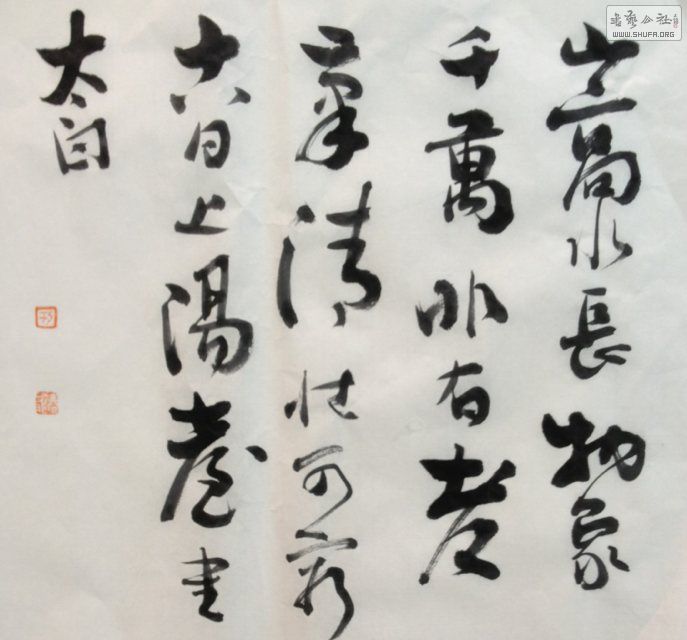 山高水長物象
千萬非有老
筆清壯可窮
十八日上陽臺書
太白
書藝公社
WWW.SHUFA.ORG